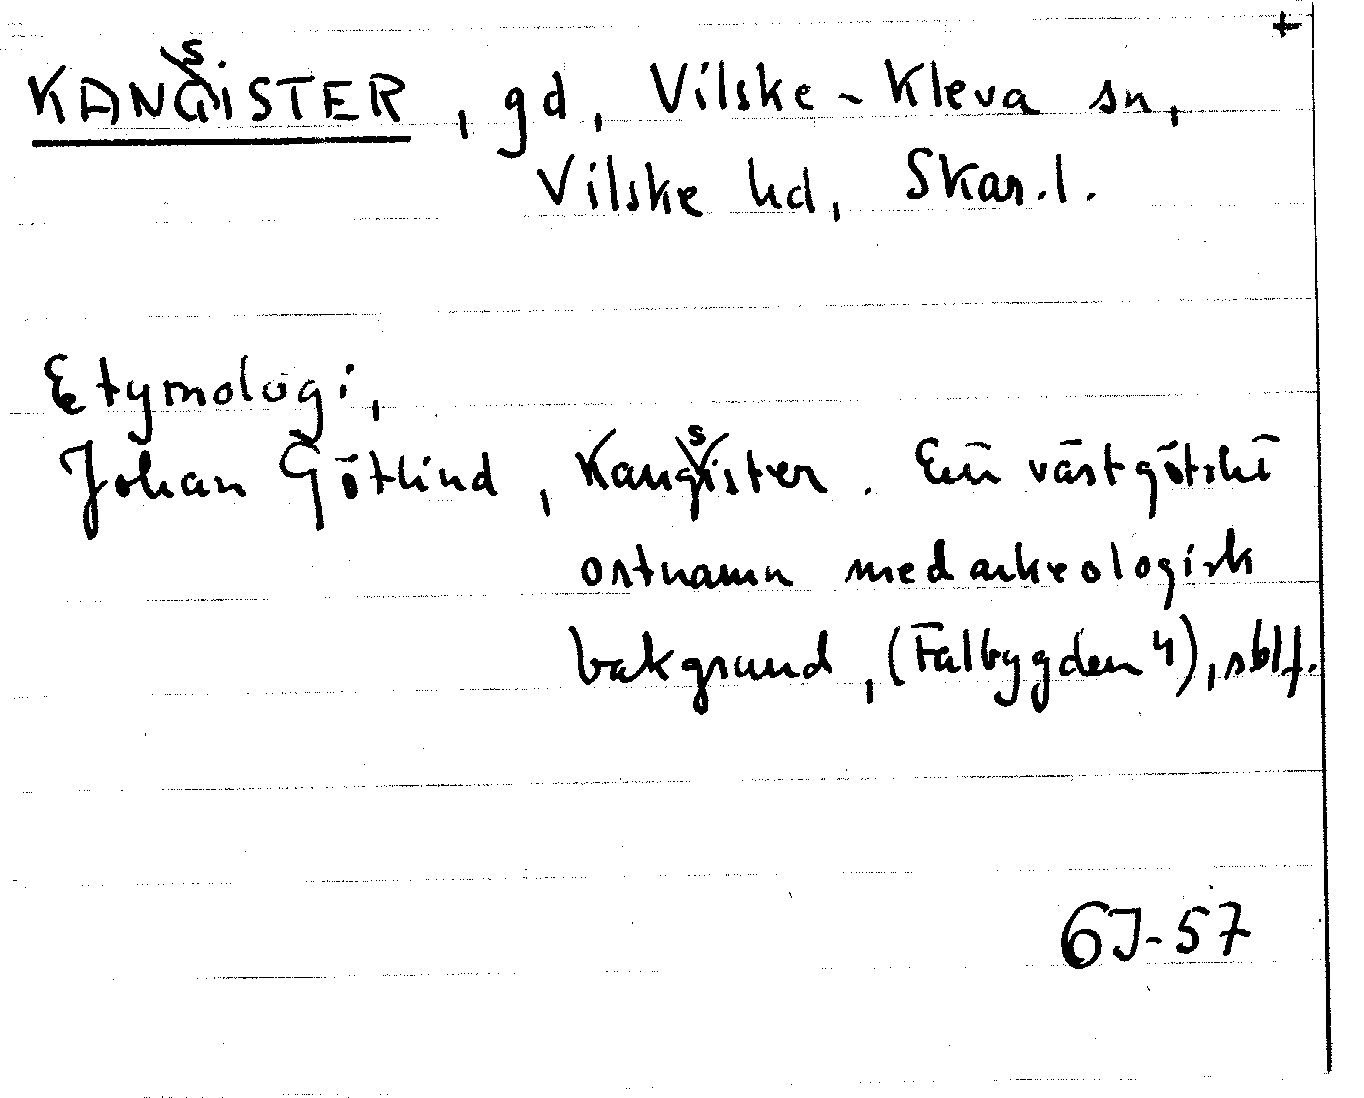 +
KANSISTER, gd, Vilske-Kleva sn,
Vilske hd, Skar.l.
Etymologi,
Johan Götlind, Kansister. Ett västgötskt
ortnamn med arkeologisk
bakgrund, (Falbygden 4), sblf.
GJ-57